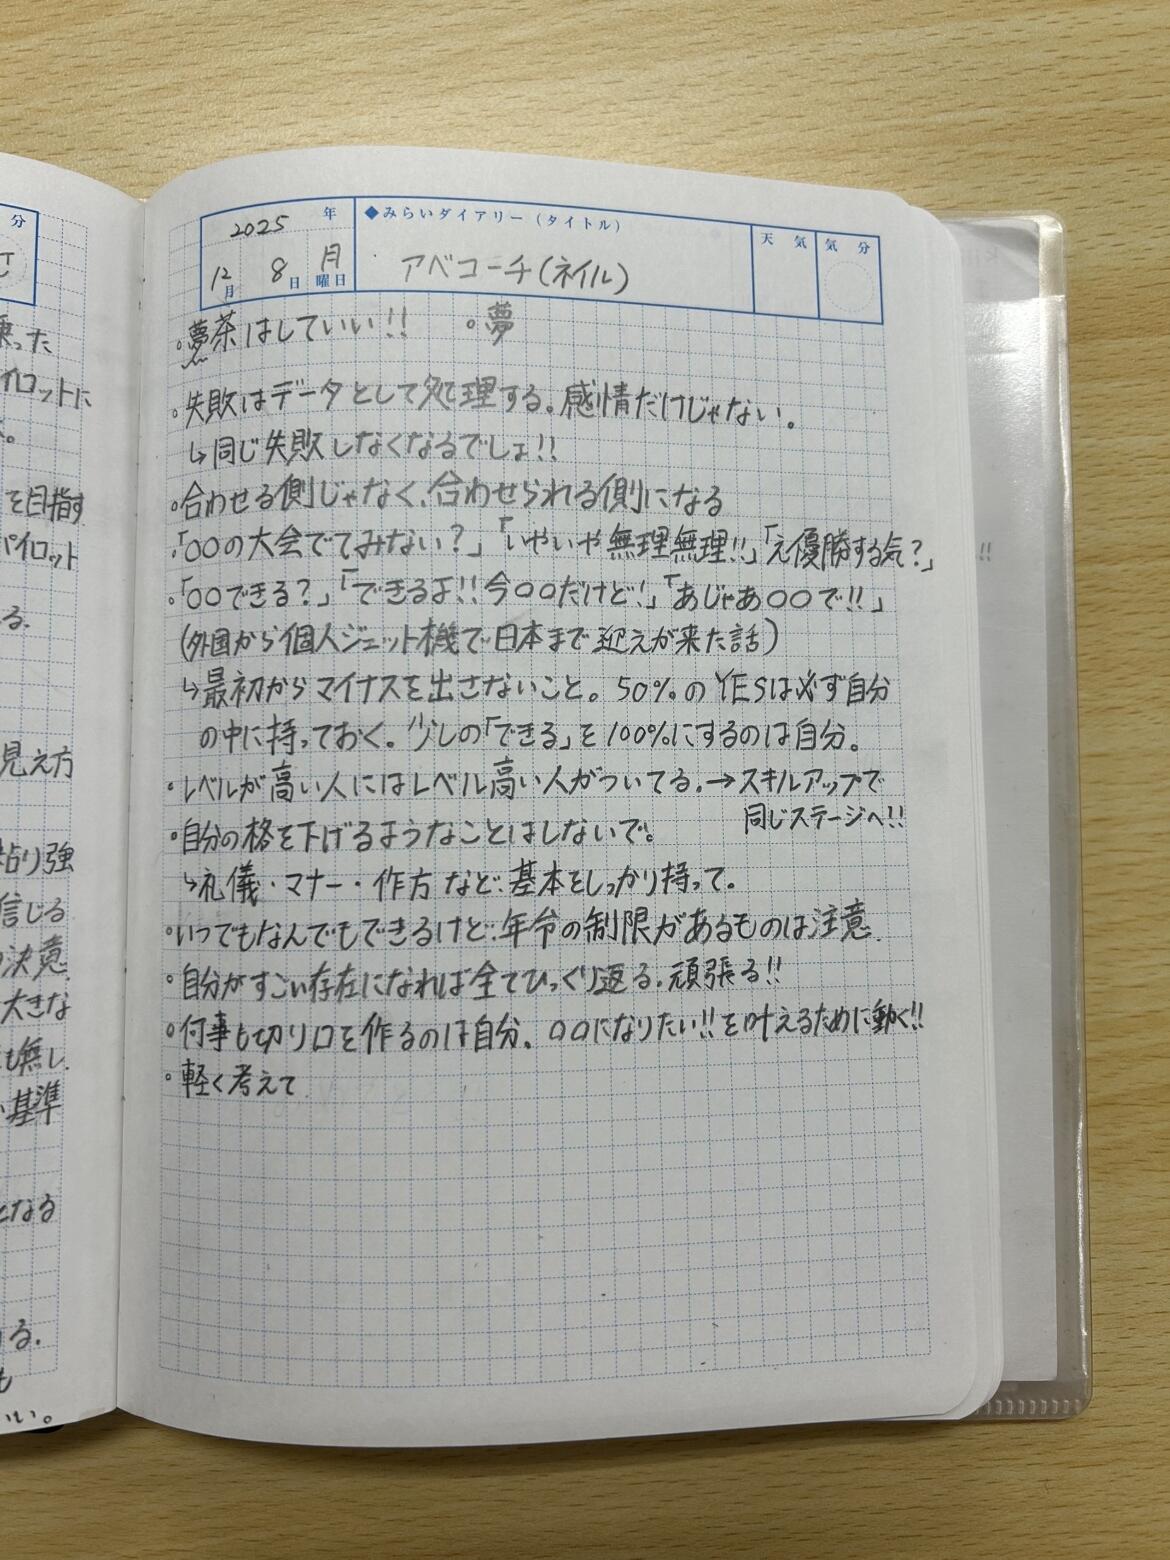 分
乗った
イロットに
を目指す
パイロット
る.
見え方
粘り強
信じる
決意
大きな
も無し
基準
となる
る.
も
いい。
2025 年
12月 8日 月曜日
◆みらいダイアリー（タイトル）
アベコーチ(ネイル)
天 気
気 分
。夢茶はしていい!! 。夢
。失敗はデータとして処理する。感情だけじゃない。
↳同じ失敗しなくなるでしょ!!
。合わせる側じゃなく、合わせられる側になる
・「○○の大会でてみない？」「いやいや無理無理!!」「え優勝する気？」
。「○○できる？」「できるよ!!今○○だけど!」「あじゃあ○○で!!」
(外国から個人ジェット機で日本まで迎えが来た話)
↳最初からマイナスを出さないこと。50%のYESは必ず自分
の中に持っておく。少しの「できる」を100%にするのは自分。
・レベルが高い人にはレベル高い人がついてる.→スキルアップで
同じステージへ!!
・自分の格を下げるようなことはしないで。
↳礼儀・マナー・作方など、基本をしっかり持って。
・いつでもなんでもできるけど、年令の制限があるものは注意.
・自分がすごい存在になれば全てひっくり返る.頑張る!!
。何事も切り口を作るのは自分、○○になりたい!!を叶えるために動く!!
。軽く考えて
!!